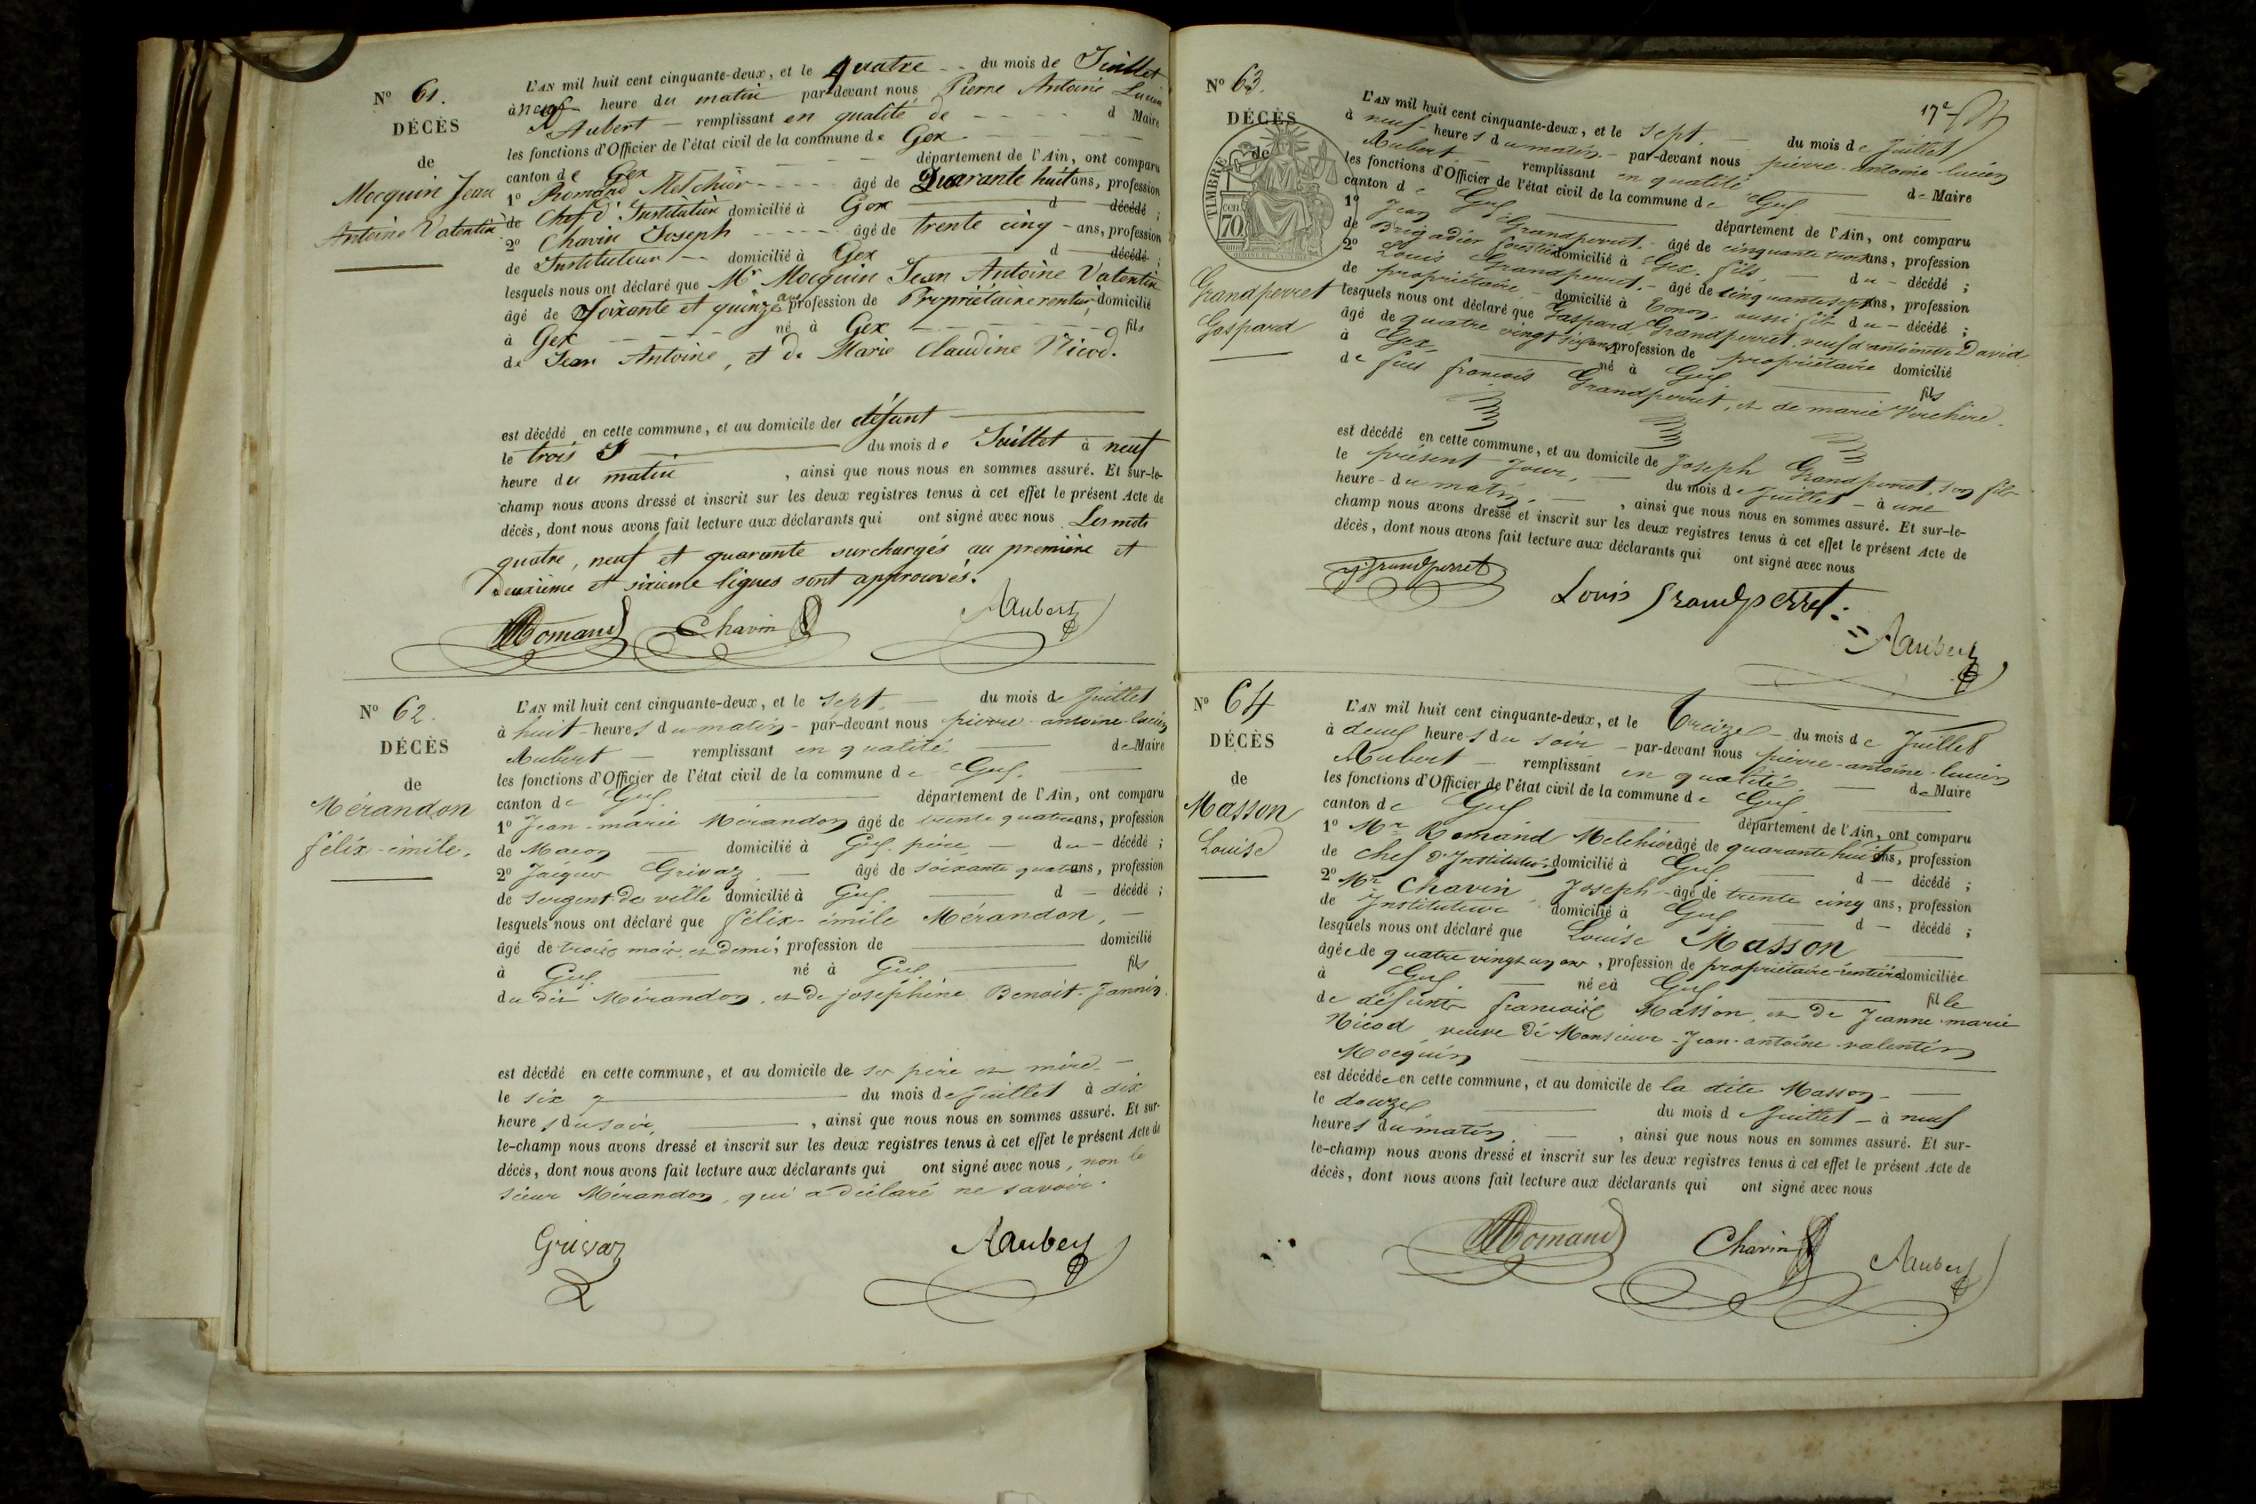 N° 61.
DÉCÈS
de
Mocquin Jean
Antoine Valentin
L'AN mil huit cent cinquante-deux, et le quatre du mois de Juillet
à neuf heure du matin par-devant nous Pierre Antoine Lucien
Aubert — remplissant en qualité de d Maire
les fonctions d'Officier de l'état civil de la commune de Gex
canton de Gex département de l'Ain, ont comparu
1° Romand Melchior âgé de Quarante huit ans, profession
de Chef d'Institution domicilié à Gex d décédé ;
2° Chavin Joseph âgé de trente cinq ans, profession
de Instituteur domicilié à Gex d décédé ;
lesquels nous ont déclaré que Mr Mocquin Jean Antoine Valentin
âgé de Soixante et quinze ans profession de Propriétaire rentier, domicilié
à Gex né à Gex fils
de Jean Antoine, et de Marie Claudine Nicod.
est décédé en cette commune, et au domicile du défunt
le trois du mois de Juillet à neuf
heure du matin , ainsi que nous nous en sommes assuré. Et sur-le-
champ nous avons dressé et inscrit sur les deux registres tenus à cet effet le présent Acte de
décès, dont nous avons fait lecture aux déclarants qui ont signé avec nous. Les mots
quatre, neuf et quarante surchargés au première et
Deuxième et sixieme lignes sont approuvés.
Romand Chavin Aubert
N° 62.
DÉCÈS
de
Mérandon
félix-émile.
L'AN mil huit cent cinquante-deux, et le sept. — du mois de Juillet
à huit heures du matin - par-devant nous pierre-antoine-lucien
Aubert — remplissant en qualité — de Maire
les fonctions d'Officier de l'état civil de la commune de Gex.
canton de Gex. département de l'Ain, ont comparu
1° Jean-marie Mérandon âgé de trente quatre ans, profession
de Macon domicilié à Gex. père — du — décédé ;
2° Jâques Grivaz — âgé de soixante quatre ans, profession
de sergent de ville domicilié à Gex. d — décédé ;
lesquels nous ont déclaré que félix-émile Mérandon, —
âgé de trois mois et demi, profession de domicilié
à Gex. né à Gex fils
du dit Mérandon, et de joséphine Benoit-Jannin.
est décédé en cette commune, et au domicile de ses père et mère —
le six du mois de Juillet à six
heures du soir, , ainsi que nous nous en sommes assuré. Et sur-
le-champ nous avons dressé et inscrit sur les deux registres tenus à cet effet le présent Acte de
décès, dont nous avons fait lecture aux déclarants qui ont signé avec nous, non le
sieur Mérandon, qui a déclaré ne savoir.
Grivaz Aubert
17e
N° 63.
DÉCÈS
de
TIMBRE
70
Grandperret
Gaspard
L'AN mil huit cent cinquante-deux, et le sept. — du mois de Juillet
à neuf heures du matin. — par-devant nous pierre-antoine lucien
Aubert — remplissant en qualité de Maire
les fonctions d'Officier de l'état civil de la commune de Gex
canton de Gex département de l'Ain, ont comparu
1° Jean Grandperret. - âgé de cinquante trois ans, profession
de Brigadier forestier domicilié à Gex, fils, — du — décédé ;
2° Louis Grandperret. - âgé de cinquante sept ans, profession
de propriétaire — domicilié à aussi fils du — décédé ;
lesquels nous ont déclaré que Gaspard Grandperret, veuf d'antoinette David
âgé de quatre vingt six ans, profession de propriétaire domicilié
à Gex, né à Gex fils
de feus françois Grandperret, et de marie Verchère.
est décédé en cette commune, et au domicile de Joseph Grandperret, son fils
le présent jour, — du mois de Juillet — à une
heure du matin. — , ainsi que nous nous en sommes assuré. Et sur-le-
champ nous avons dressé et inscrit sur les deux registres tenus à cet effet le présent Acte de
décès, dont nous avons fait lecture aux déclarants qui ont signé avec nous
Grandperret Louis Grandperret.
Aubert
N° 64
DÉCÈS
de
Masson
Louise
L'AN mil huit cent cinquante-deux, et le treize — du mois de Juillet
à deux heures du soir — par-devant nous pierre-antoine-lucien
Aubert — remplissant en qualité — de Maire
les fonctions d'Officier de l'état civil de la commune de Gex
canton de Gex département de l'Ain, ont comparu
1° Mr Romand Melchior âgé de quarante huit ans, profession
de chef d'Institution domicilié à Gex d — décédé ;
2° Mr Chavin Joseph - âgé de trente cinq ans, profession
de Instituteur domicilié à Gex d — décédé ;
lesquels nous ont déclaré que Louise Masson
âgée de quatre vingt un ans, profession de propriétaire-rentière domiciliée
à Gex. née à Gex fille
de défunts françois Masson, et de Jeanne-marie
Nicod veuve de Monsieur Jean-antoine-valentin
Mocquin
est décédée en cette commune, et au domicile de la dite Masson —
le douze du mois de Juillet — à neuf
heures du matin. — , ainsi que nous nous en sommes assuré. Et sur-
le-champ nous avons dressé et inscrit sur les deux registres tenus à cet effet le présent Acte de
décès, dont nous avons fait lecture aux déclarants qui ont signé avec nous
Romand Chavin Aubert